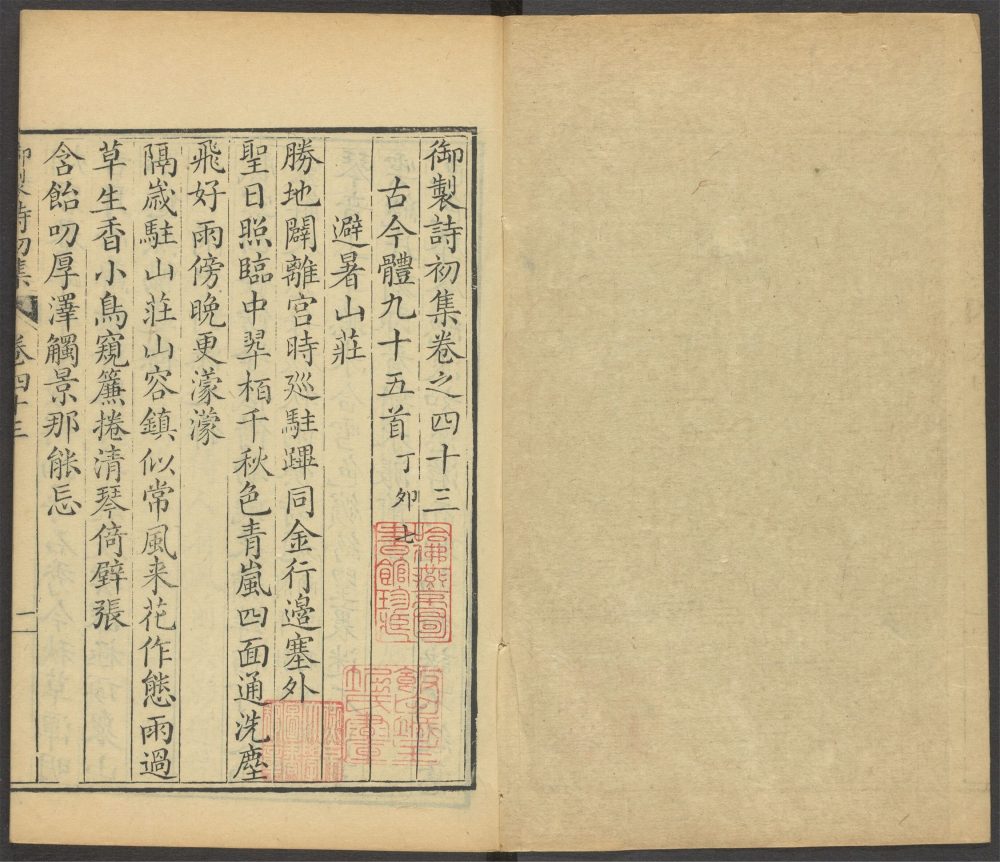 御製詩初集卷之四十三
古今體九十五首 丁夘七
避暑山莊
勝地闢離宫時廵駐蹕同金行邊塞外
聖日照臨中翠栢千秋色青嵐四面通洗塵
飛好雨傍晚更濛濛
隔嵗駐山莊山容鎮似常風来花作態雨過
草生香小鳥窺簾捲清琴倚壁張
含飴叨厚澤觸景那能忘
御製詩初集 卷四十三 一
哈佛燕京圖書館珍藏